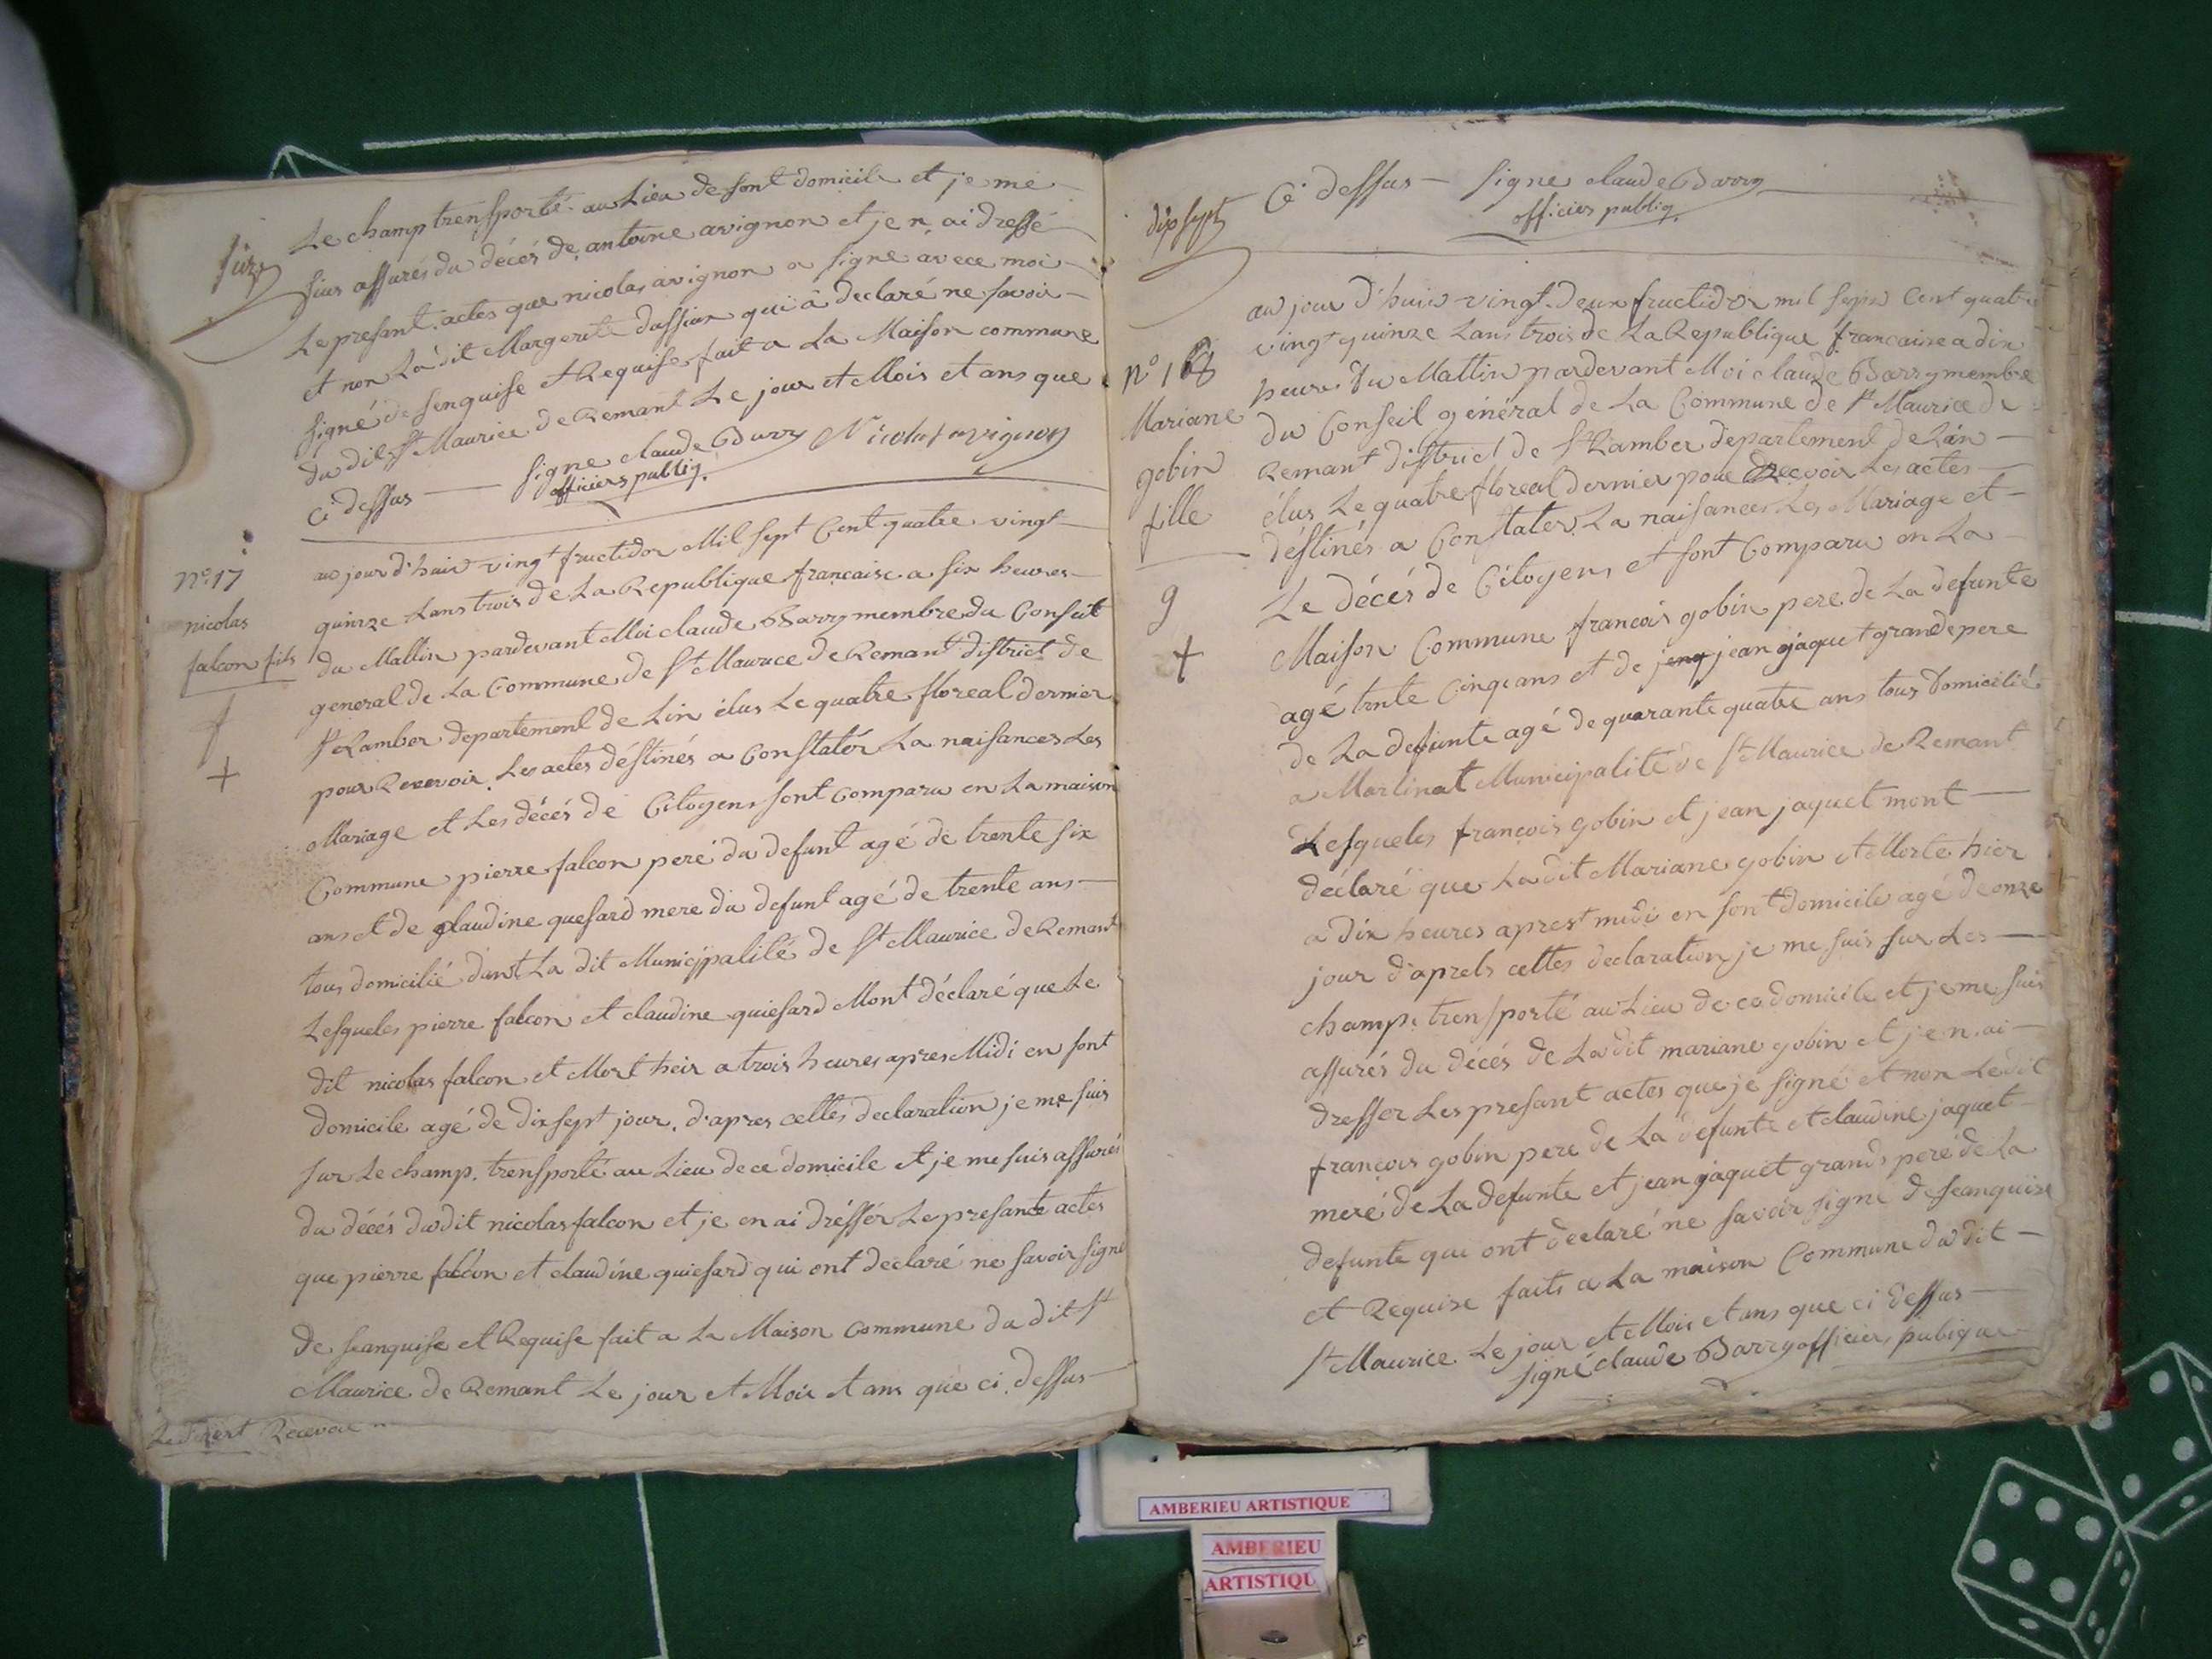 Le champ trensporté au Lieu de sont domicile et je me
suis assurés du décés de antoine avignon et je n'ai dressé
Le presant actes que nicolas avignon a signé avece moi
et non Ladit Margerite dassiar qui à declaré ne savoir
signé de senquise et Requise fait a La Maison commune
du dit St Maurice de Remant Le jour et Mois et ans que
ci dessus — signe claude Barry Nicolas avignon
officiers publiq.
N° 17
nicolas
falcon fils
f
+
au jour d'huis vingt fructidor Mil sept Cent quatre vingt
quinze Lans trois de La Republique francaise a six heures
du Mattin pardevant Moi claude Barry membre du Conseil
general de La Commune de St Maurice de Remant district de
St Lamber departement de Lin élus Le quatre floreal dernier
pour Recevoir Les actes déstinés a Constatér La naisances Les
Mariage et Les décés de Citoyens sont Comparu en La maison
Commune pierre falcon peré du defunt agé de trente six
ans et de glaudine quesard mere du defunt agé de trente ans
tous domicilié dant La dit Municipalité de St Maurice de Remant
Lesqueles pierre falcon et claudine quiesard Mont déclaré que Le
dit nicolas falcon et Mort heir a trois heures apres Midi en sont
domicile agé de dix sept jour. d'apres celles declaration je me suis
sur Le champ. trensporté au Lieu de ce domicile et je me suis assurés
du décés dudit nicolas falcon et je en ai dréssér Le presante actes
que pierre falcon et claudine quiesard qui ont declaré ne savoir signé
de seanquise et Requise fait a La Maison Commune du dit St
Maurice de Remant Le jour et Mois et ans que ci dessus
dix sept
Ci dessus — signe claude Barry
officiers publiq.
N° 18
Mariane
gobin
fille
g
+
au jour d'huis vingt deux fructidor mil sept Cent quatre
vingt quinze Lans trois de La Republique francaise a dix
heures du Mattin pardevant Moi claude Barry membre
du Conseil général de La Commune de St Maurice de
Remant district de St Lamber departement de Lain
élus Le quatre floreal dernier pour Recevoir Les actes
déstinés a Constater La naisances Les Mariage et
Le décés de Citoyens et sont Comparu en La
Maison Commune francois gobin pere de La defunte
agé trente cinq ans et de jean jaquet grand pere
de La defunte agé de quarante quatre ans tous Domicilié
a Martinat Municipalité de St Maurice de Remant
Lesqueles françois gobin et jean jaquet mont
déclaré que Ladit Mariane gobin et Morte hier
a dix heures aprest midi en sont domicile agé de onze
jour d'aprels celtes declaration je me suis sur Les
champ. trensporté au Lieu de ce domicile et je me suis
assurés du décés de Ladit mariane gobin et je n'ai
dresser Les presant actes que je signé et non Le dit
françois gobin pere de La defunte et claudine jaquet
meré de La defunte et jean jaquet grands peré de La
defunte qui ont declaré ne savoir signé de seanquise
et Requise faits a La maison Commune du dit
St Maurice Le jour et Mois et ans que ci dessus
signé claude Barry officiers publique
AMBERIEU ARTISTIQUE
AMBERIEU
ARTISTIQU